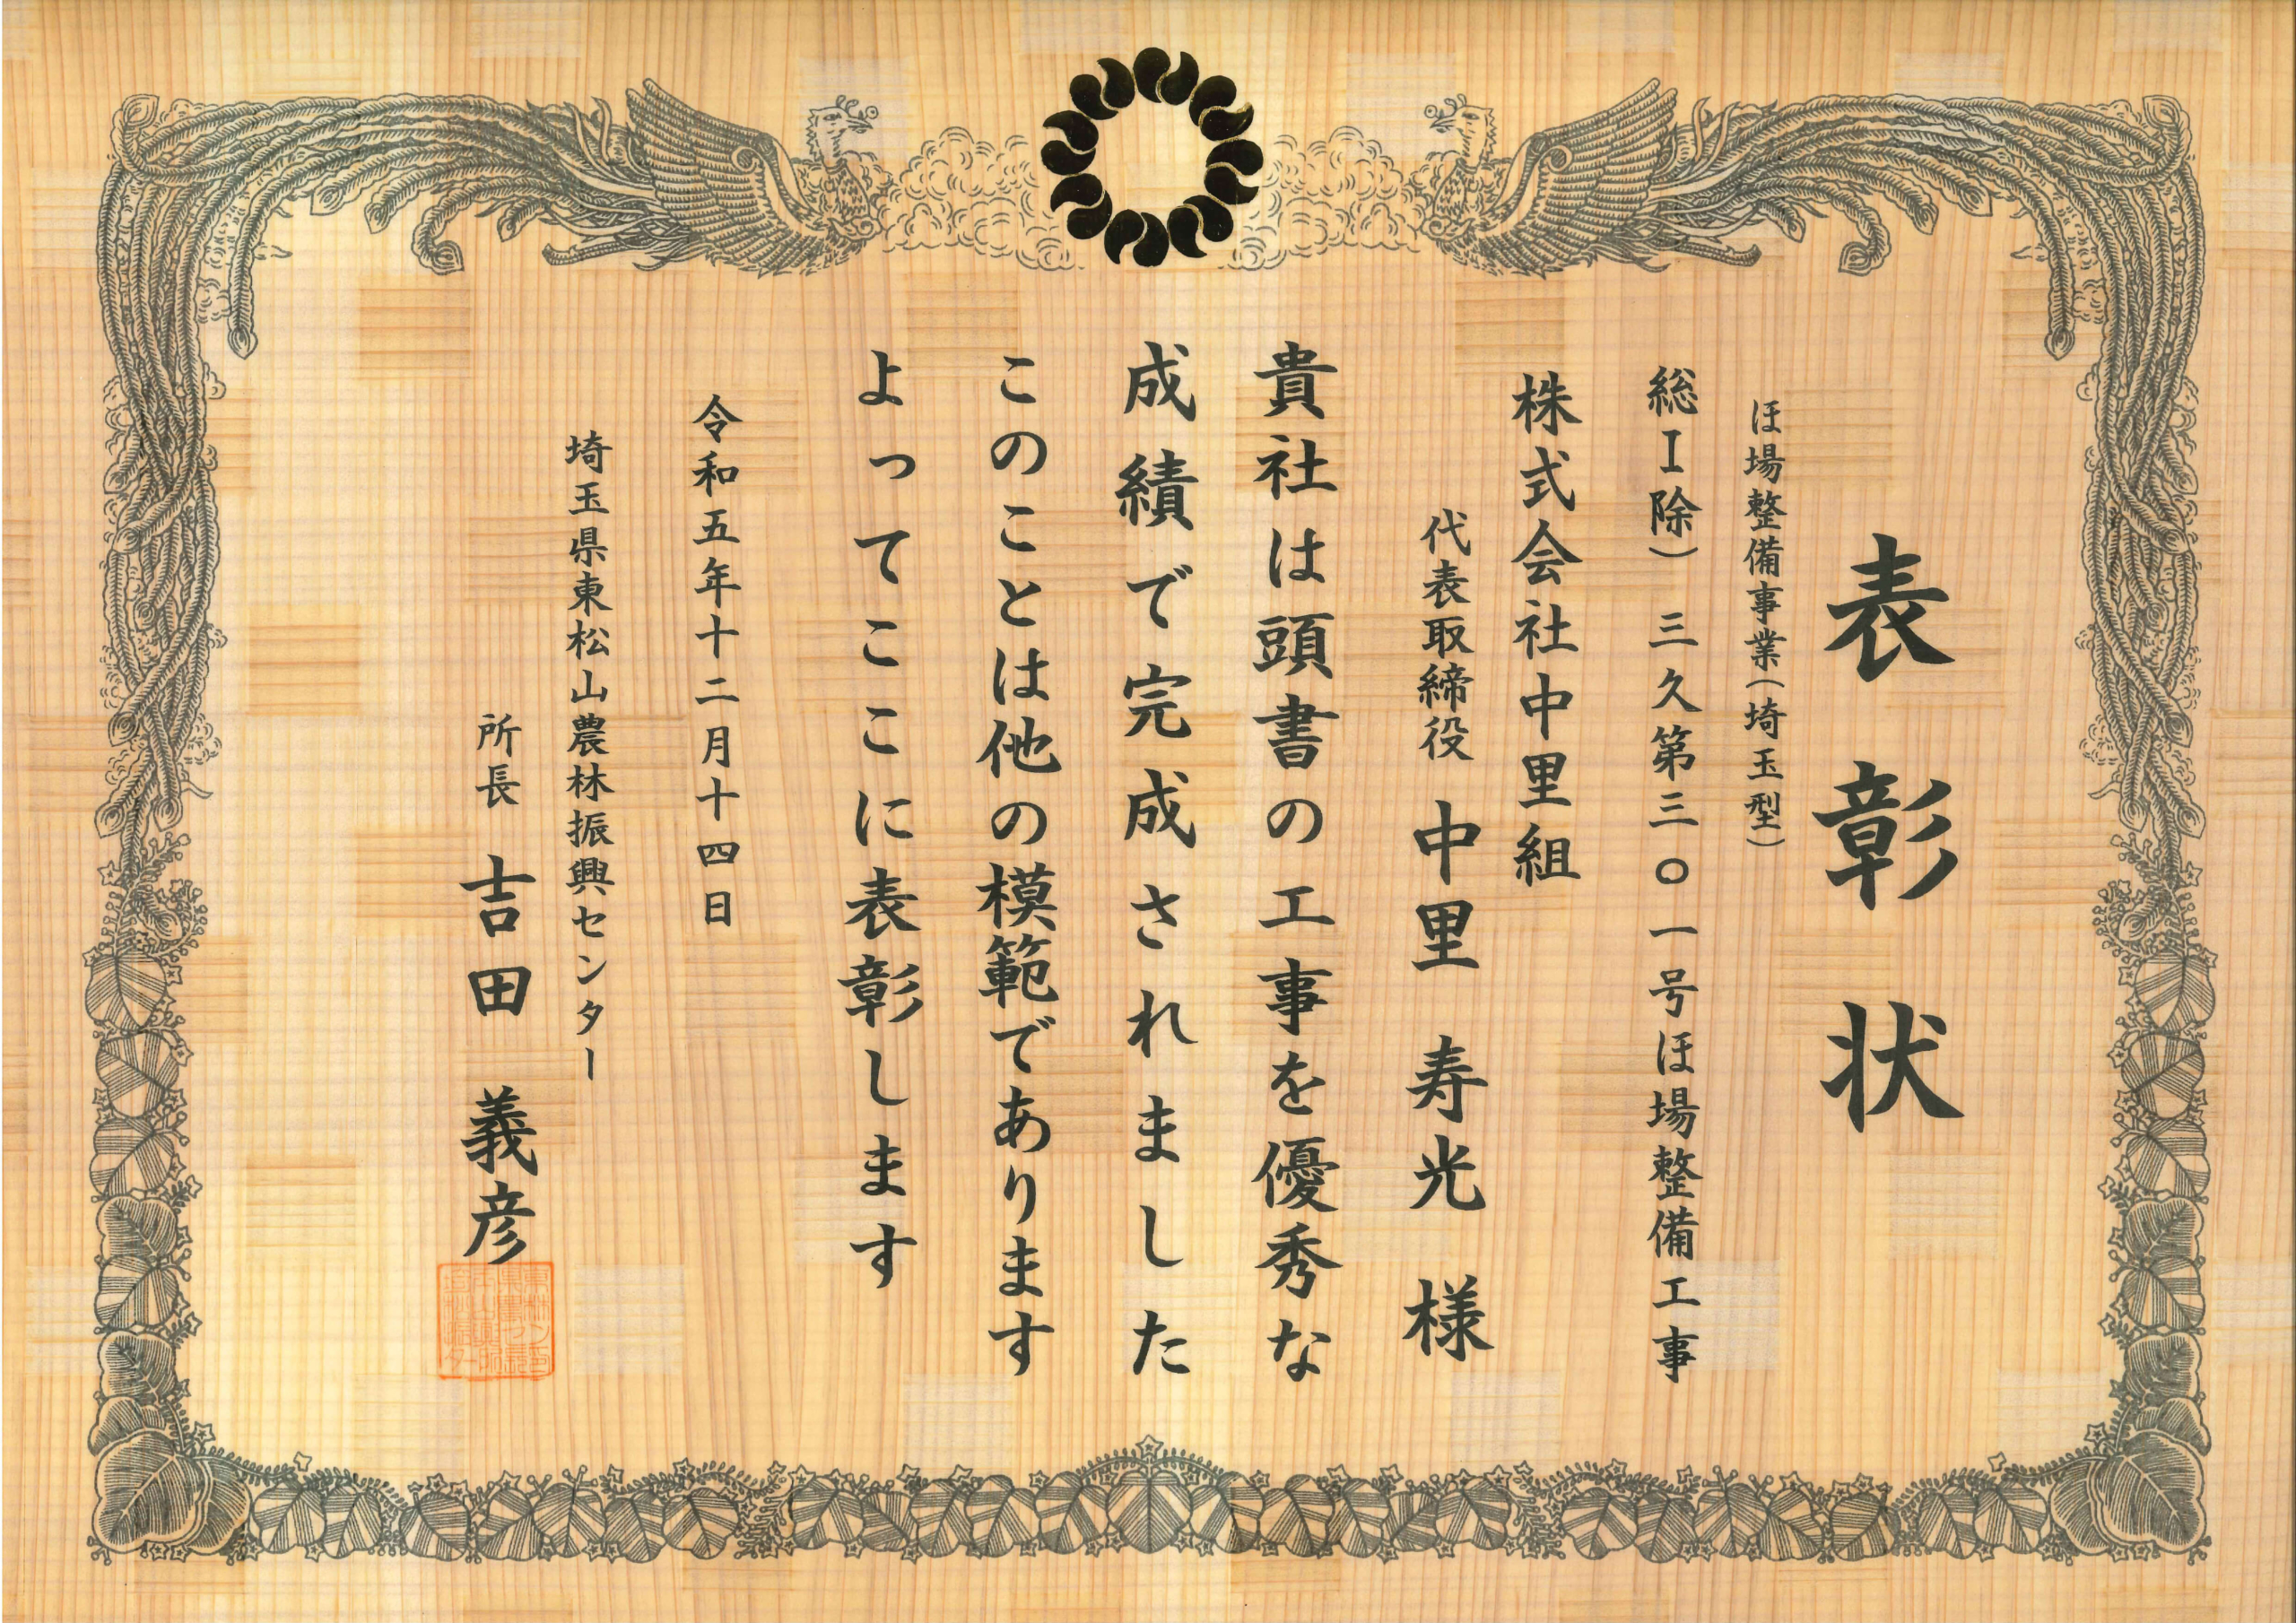 表彰状
ほ場整備事業(埼玉型)
総I除) 三久第三〇一号ほ場整備工事
株式会社中里組
代表取締役 中里 寿光 様
貴社は頭書の工事を優秀な
成績で完成されました
このことは他の模範であります
よってここに表彰します
令和五年十二月十四日
埼玉県東松山農林振興センター
所長 吉田 義彦